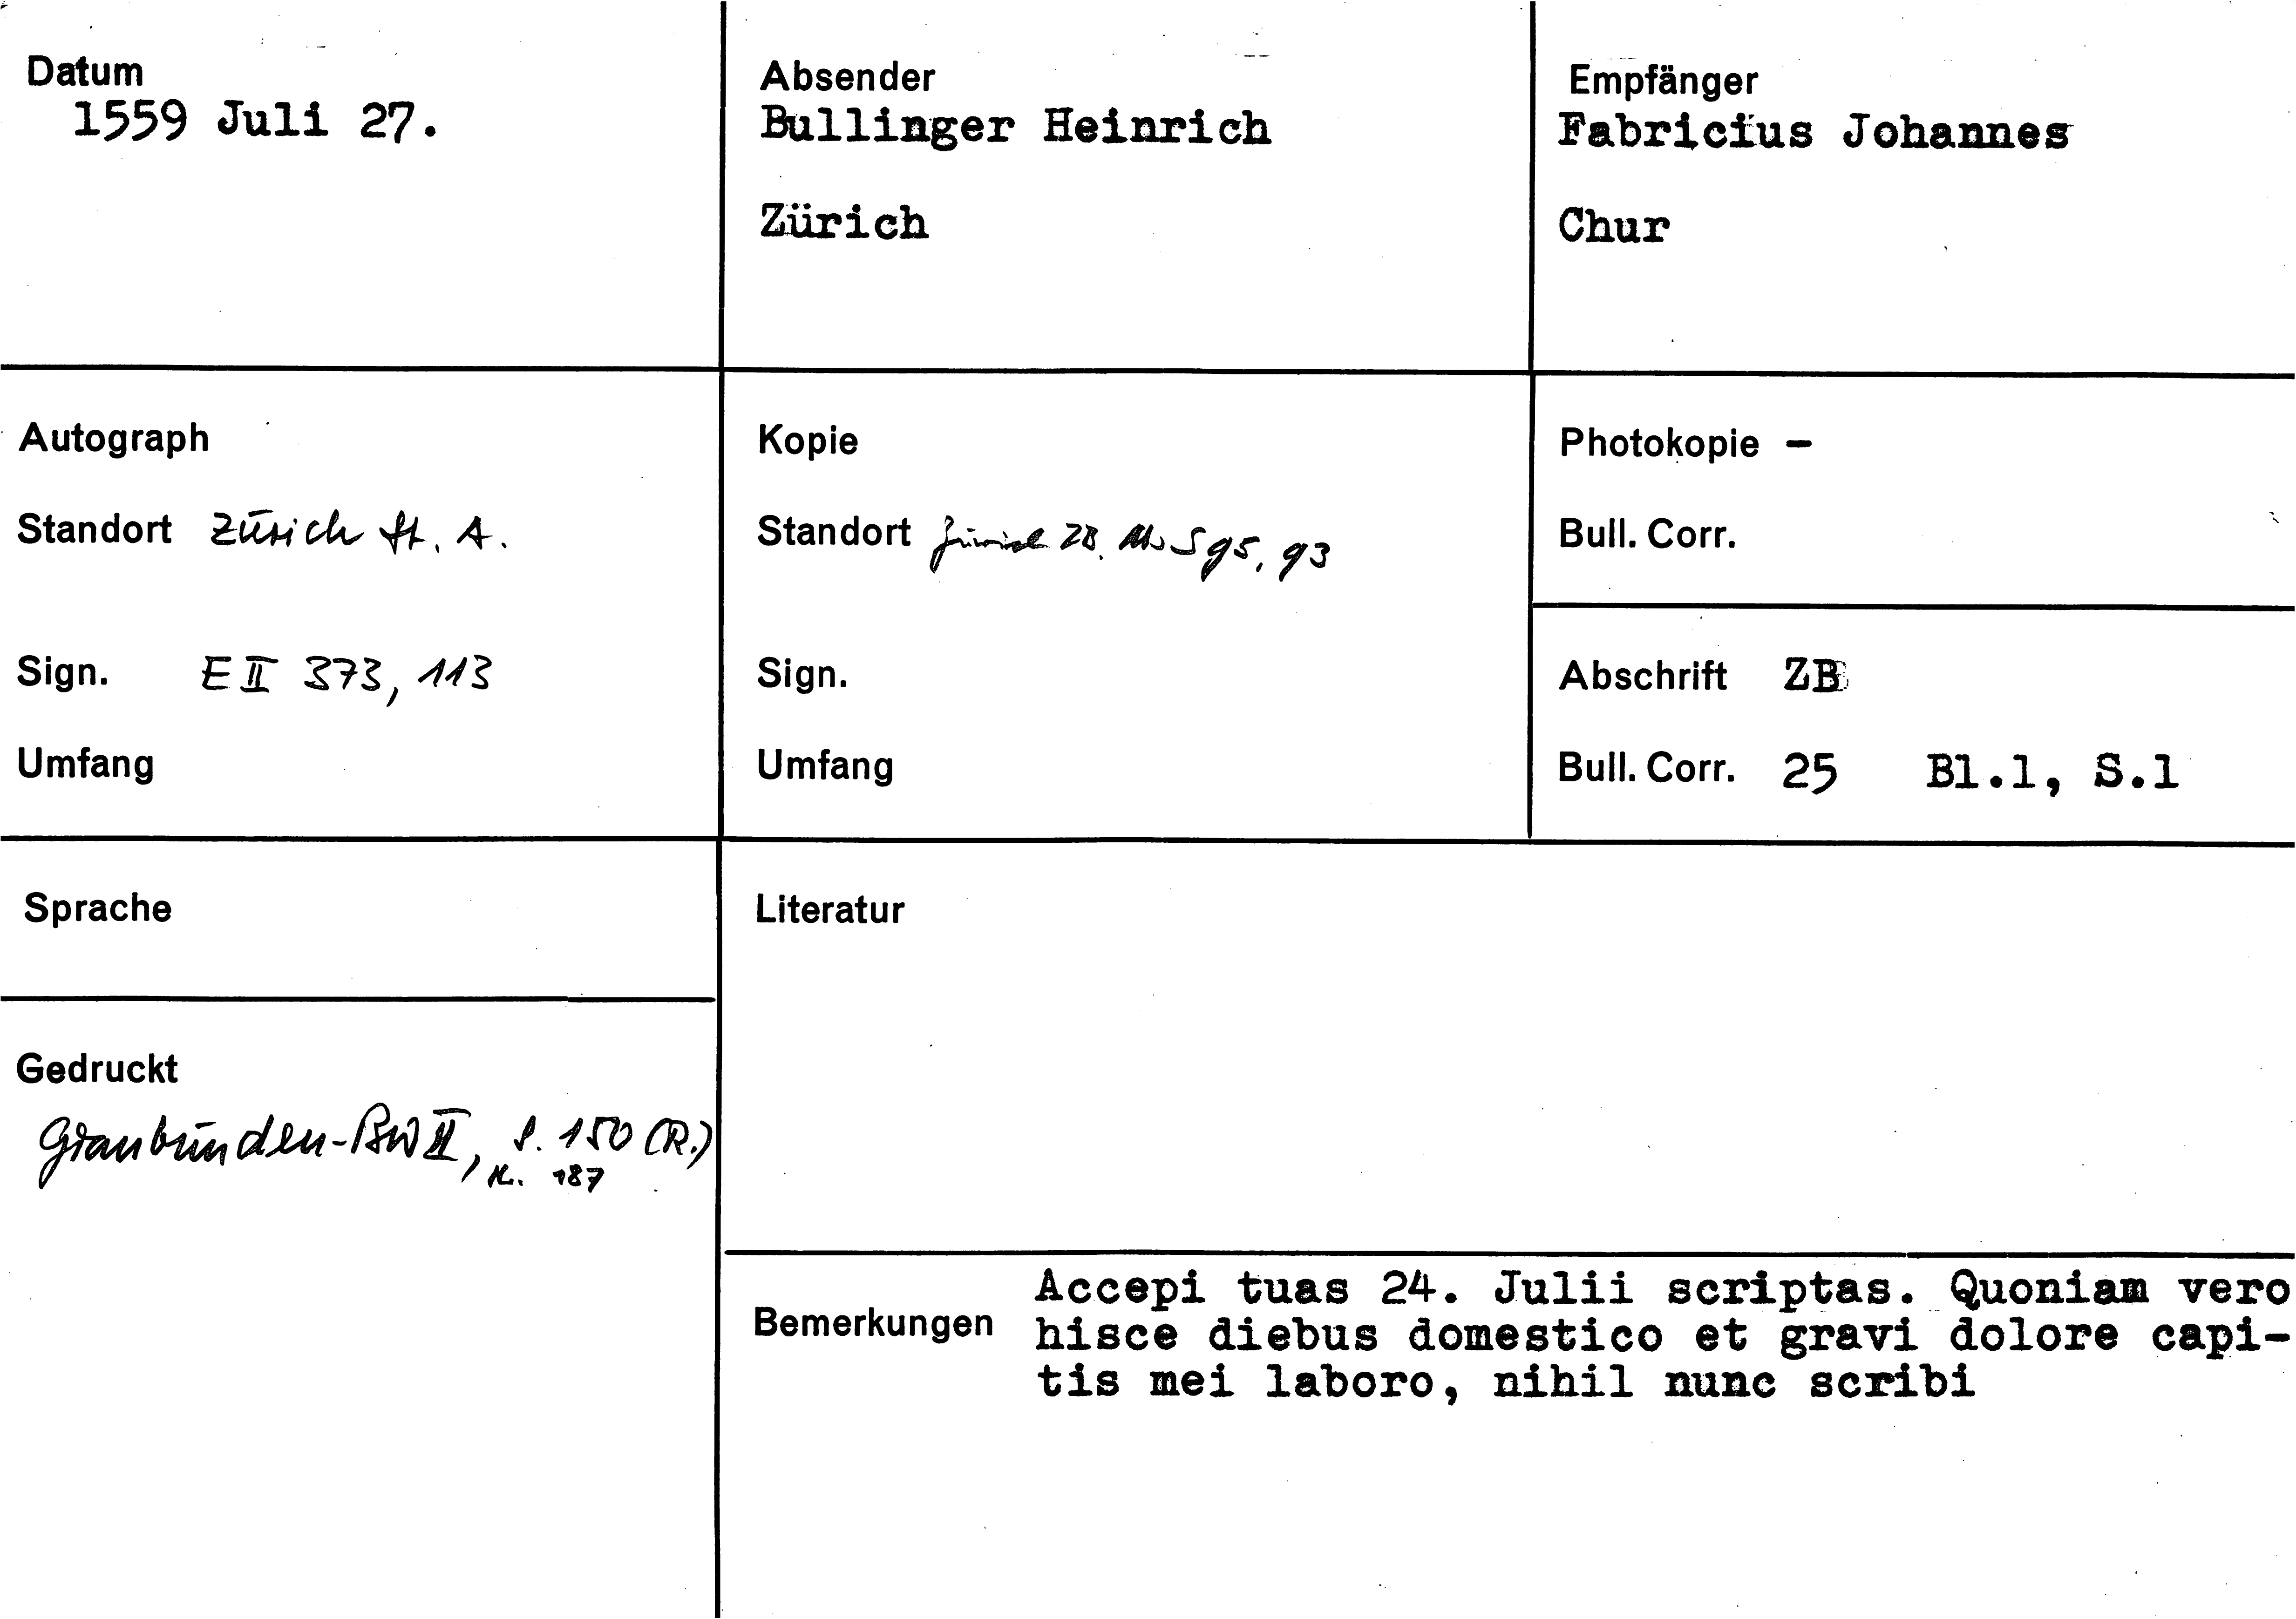 Datum
1559 Juli 27.
Absender
Bullinger Heinrich
Zürich
Empfänger
Fabricius Johannes
Chur
Autograph
Standort Zürich St. A.
Sign. E II 373, 113
Umfang
Kopie
Standort Zürich ZB. Ms S 95, 93
Sign.
Umfang
Photokopie -
Bull. Corr.
Abschrift ZB
Bull. Corr. 25 Bl.1, S.1
Sprache
Gedruckt
Graubünden-BW II, S. 150 (R.)
N. 187
Literatur
Bemerkungen
Accepi tuas 24. Julii scriptas. Quoniam vero
hisce diebus domestico et gravi dolore capi-
tis mei laboro, nihil nunc scribi